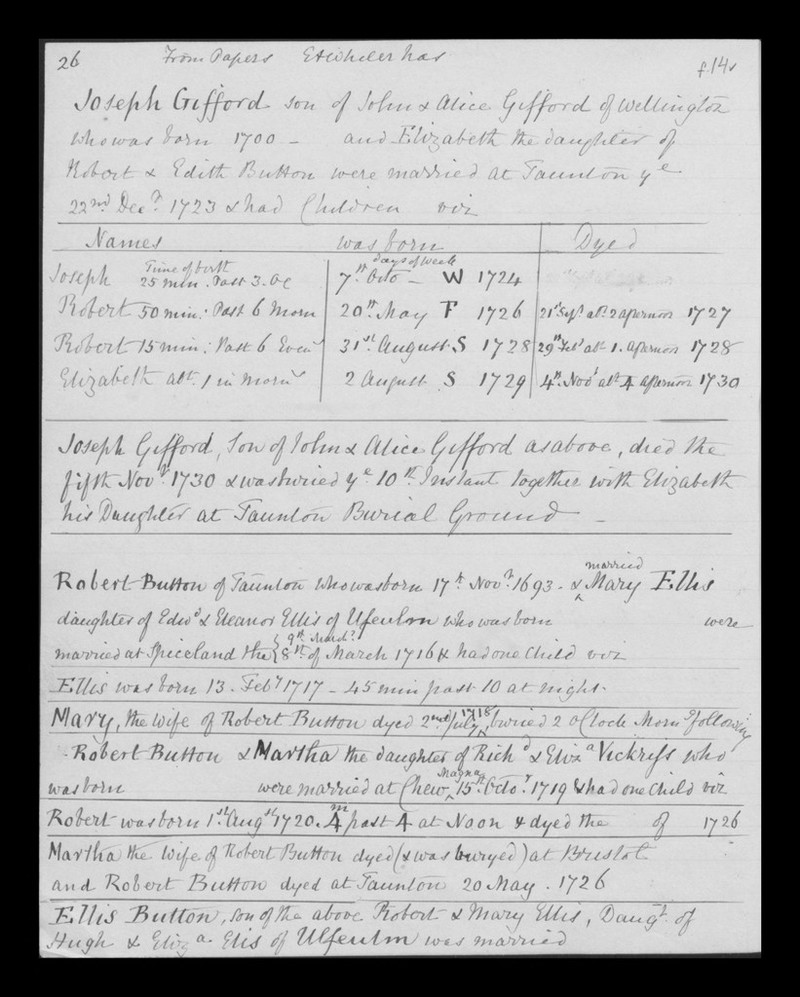 26 From Papers EAWheeler has f.14v
Joseph Gifford son of John & Alice Gifford of Wellington
who was born 1700 – and Elizabeth the daughter of
Robert & Edith Button were married at Taunton ye
22nd Decr 1723 & had Children viz
Names was born Dyed
Time of birth days of Week
Joseph 25 min. Past 3. oc 7th Octo – W 1724
Robert 50 min: Past 6 Morn 20th May F 1726 21st Sept abt 2 afternoon 1727
Robert 15 min: Past 6 Even 31st August S 1728 29th abt 1. afternoon 1728
Elizabeth abt 1 in Morng 2 August S 1729 4th Novr abt 4 afternoon 1730
Joseph Gifford, Son of John & Alice Gifford as above, died the
fifth Novr 1730 & was buried ye 10th Instant together with Elizabeth
his Daughter at Taunton Burial Ground –
married
Robert Button of Taunton who was born 17th Novr 1693 - & Mary Ellis
daughter of Edwd & Eleanor Ellis of Ufculm who was born were
9th March?
married at Spiceland the { 8th of March 1716 & had one Child viz
Ellis was born 13. Feby 1717 – 45 min past 10 at night.
1718
Mary, the wife of Robert Button dyed 2nd July, buried 2 o Clock Morng following
Robert Button & Martha the daughter of Richd & Eliza Vickriss who
Magna
was born were married at Chew 15th Octor 1719 & had one Child viz
Robert was born 1st Augst 1720. 4m past 4 at Noon & dyed the of 1726
Martha the Wife of Robert Button dyed (& was buryed) at Bristol
and Robert Button dyed at Taunton 20 May. 1726
Ellis Button, son of the above Robert & Mary Ellis, Daugt of
Hugh & Eliza Elis of Ulfculm was married